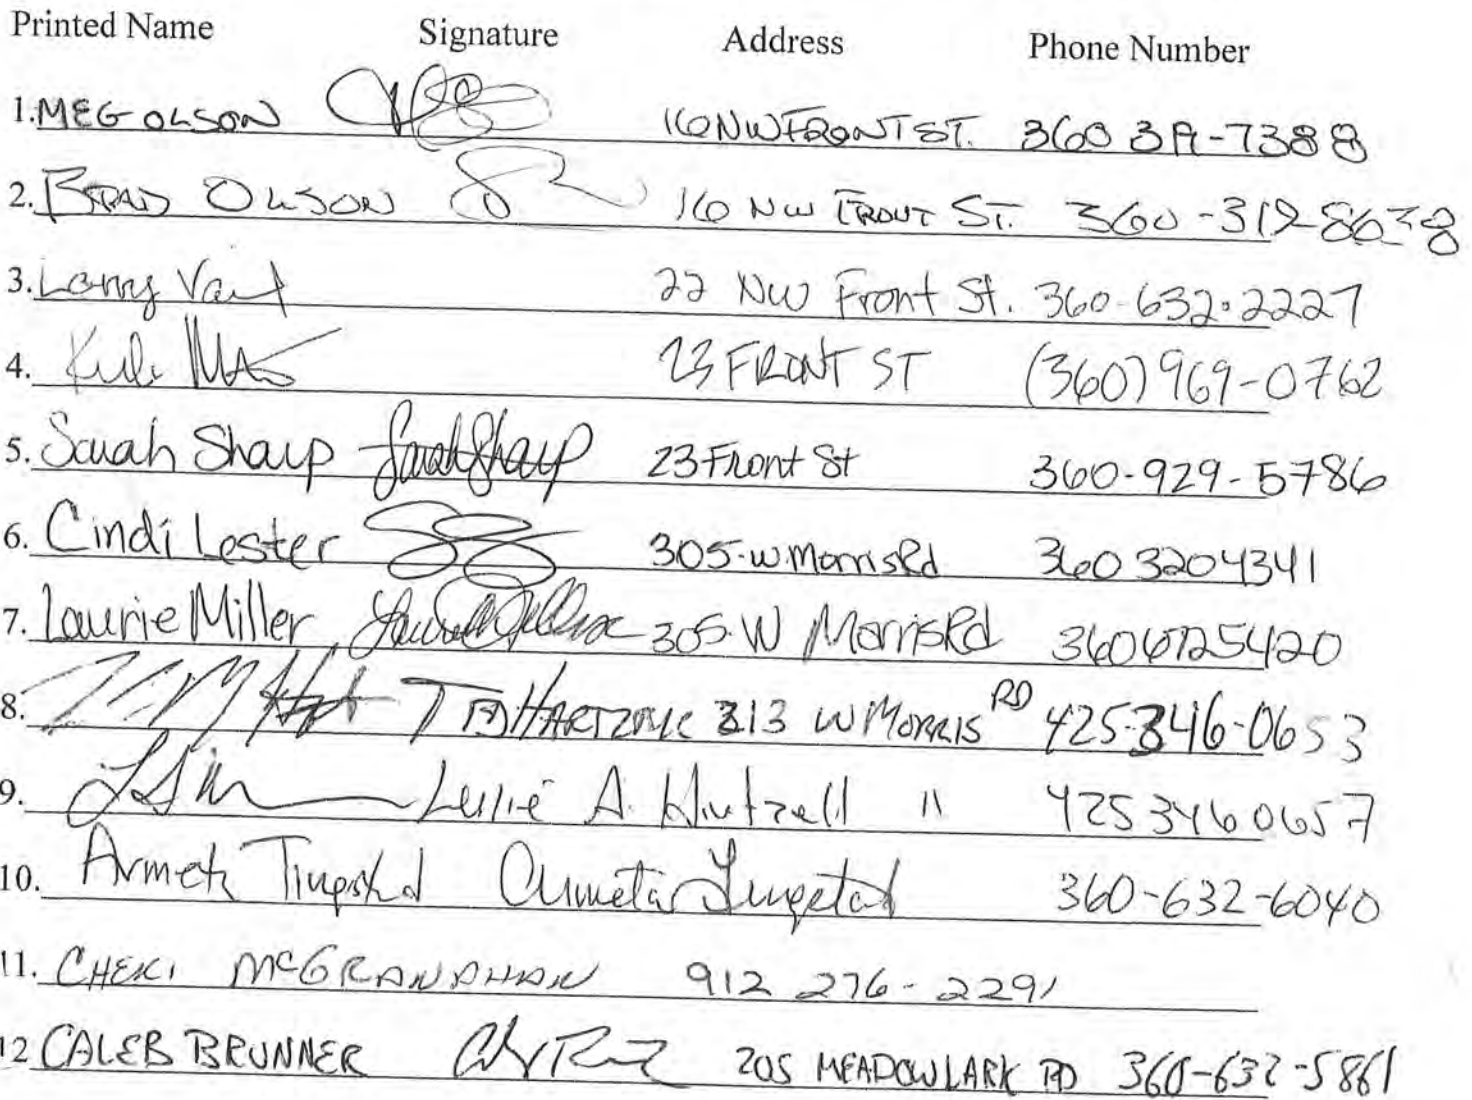 Printed Name Signature Address Phone Number
1. MEG OLSON 16 NW FRONT ST. 360 319-7388
2. BRAD OLSON 16 NW FRONT ST. 360-319-8638
3. Larry 22 NW Front St. 360-632-2227
4. Kyle 23 FRONT ST (360) 969-0762
5. Sarah Sharp Sarah Sharp 23 Front St 360-929-5786
6. Cindi Lester 305 W. Morris Rd 360 320 4341
7. Laurie Miller 305 W Morris Rd
8. 313 W MORRIS RD 425-346-0653
9. Leslie A. 11 425 346 0657
10. 360-632-6040
11. CHERI McGRANAHAN 912 276-2291
12 CALEB BRUNNER 205 MEADOWLARK RD 360-632-5861